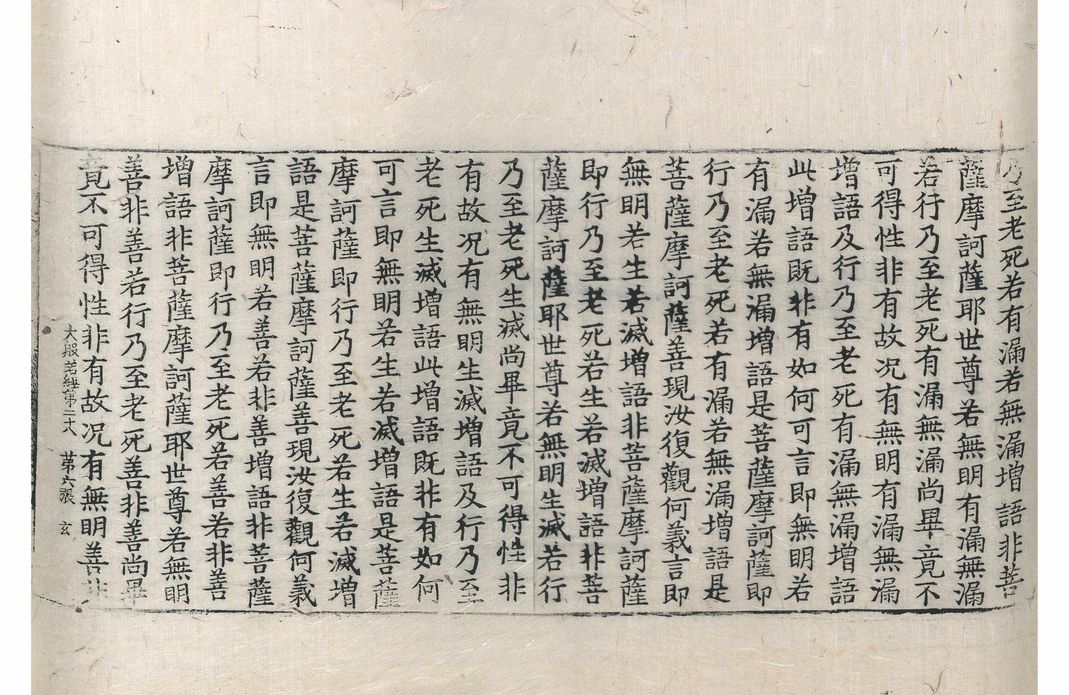 乃至老死若有漏若無漏增語非菩
薩摩訶薩耶世尊若無明有漏無漏
若行乃至老死有漏無漏尚畢竟不
可得性非有故况有無明有漏無漏
增語及行乃至老死有漏無漏增語
此增語既非有如何可言即無明若
有漏若無漏增語是菩薩摩訶薩即
行乃至老死若有漏若無漏增語是
菩薩摩訶薩善現汝復觀何義言即
無明若生若滅增語非菩薩摩訶薩
即行乃至老死若生若滅增語非菩
薩摩訶薩耶世尊若無明生滅若行
乃至老死生滅尚畢竟不可得性非
有故况有無明生滅增語及行乃至
老死生滅增語此增語既非有如何
可言即無明若生若滅增語是菩薩
摩訶薩即行乃至老死若生若滅增
語是菩薩摩訶薩善現汝復觀何義
言即無明若善若非善增語非菩薩
摩訶薩即行乃至老死若善若非善
增語非菩薩摩訶薩耶世尊若無明
善非善若行乃至老死善非善尚畢
竟不可得性非有故况有無明善非
大般若經第二十八 第六張 玄